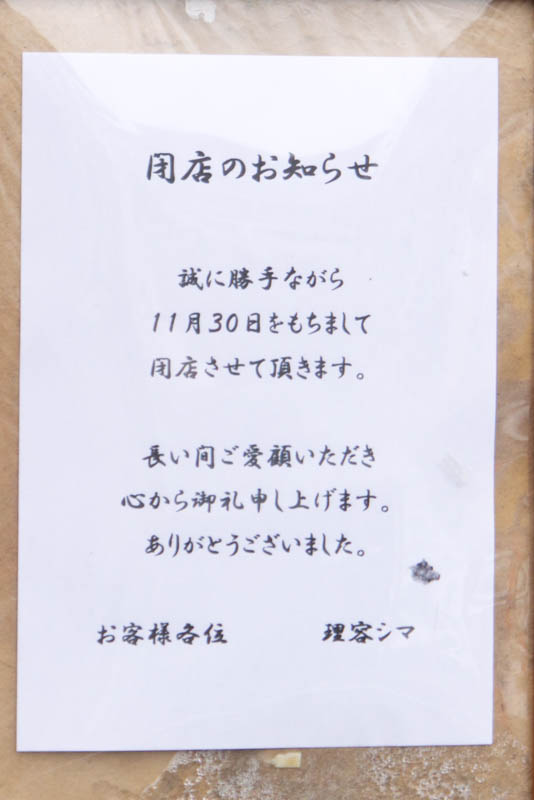 閉店のお知らせ
誠に勝手ながら
11月30日をもちまして
閉店させて頂きます。
長い間ご愛顧いただき
心から御礼申し上げます。
ありがとうございました。
お客様各位 理容シマ